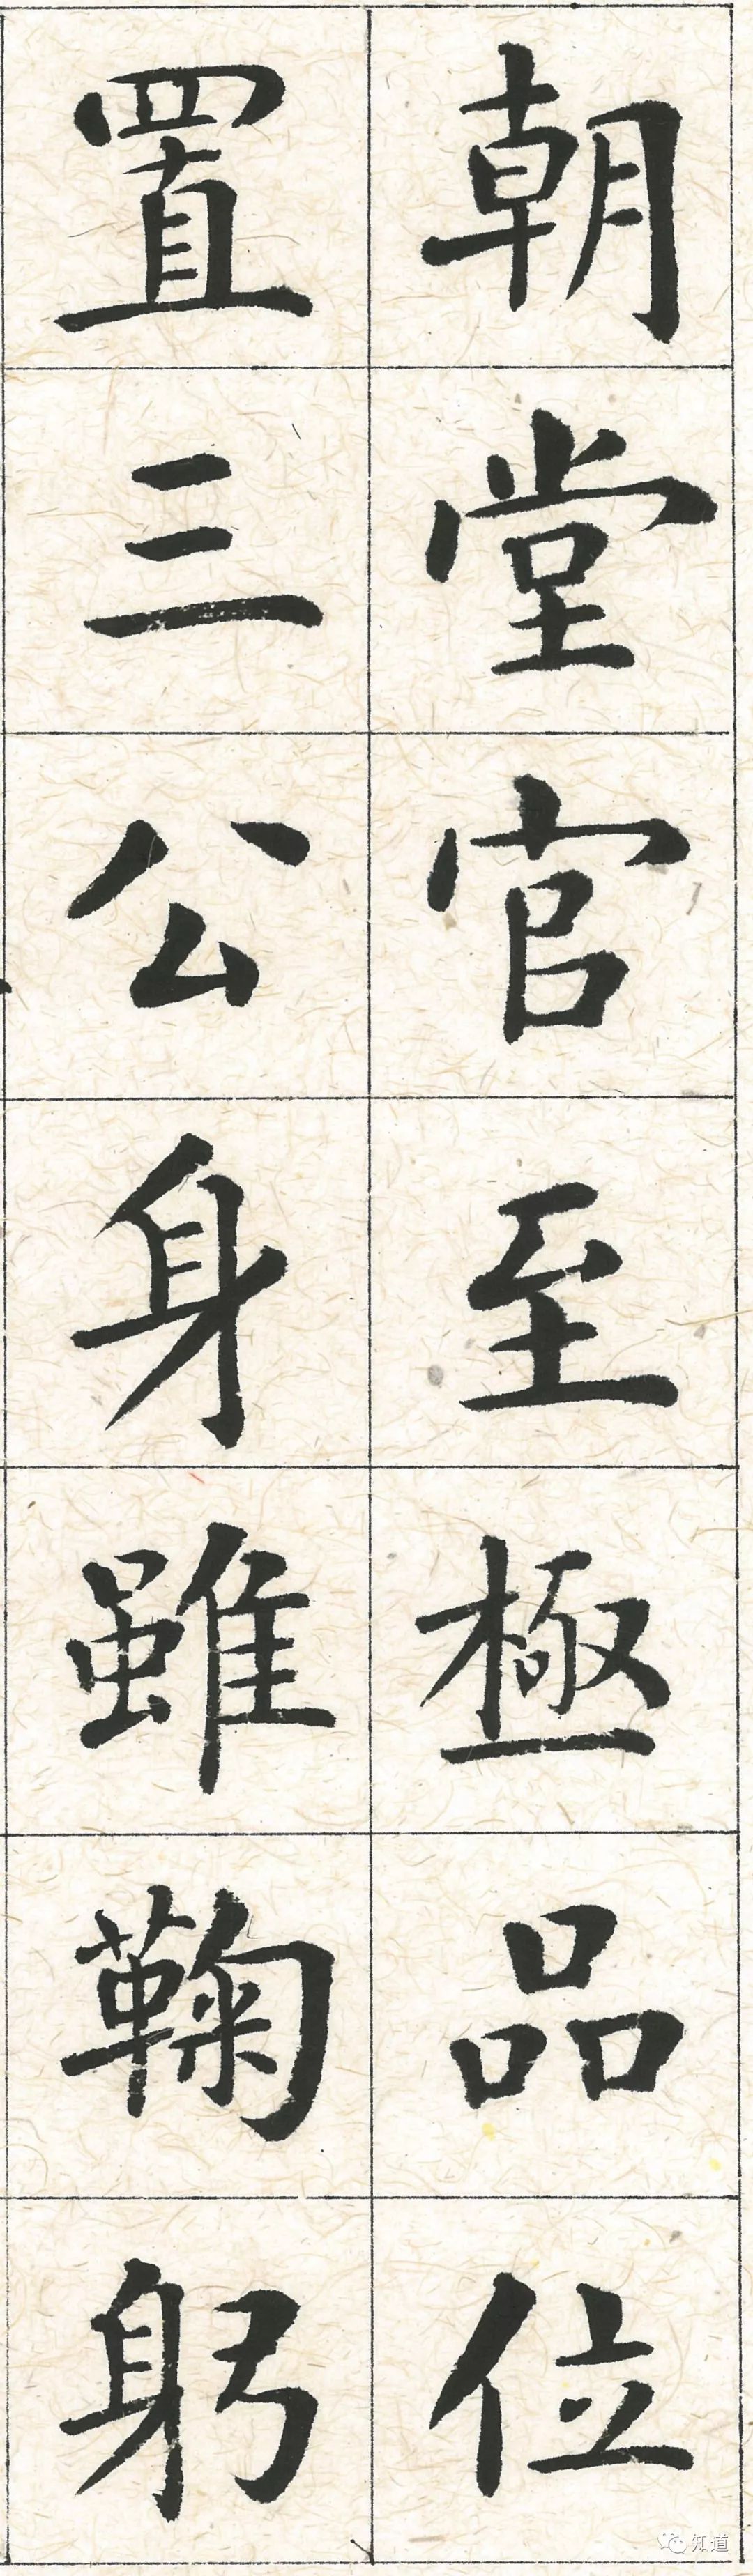 朝堂官至極品位
置三公身雖鞠躬
知道